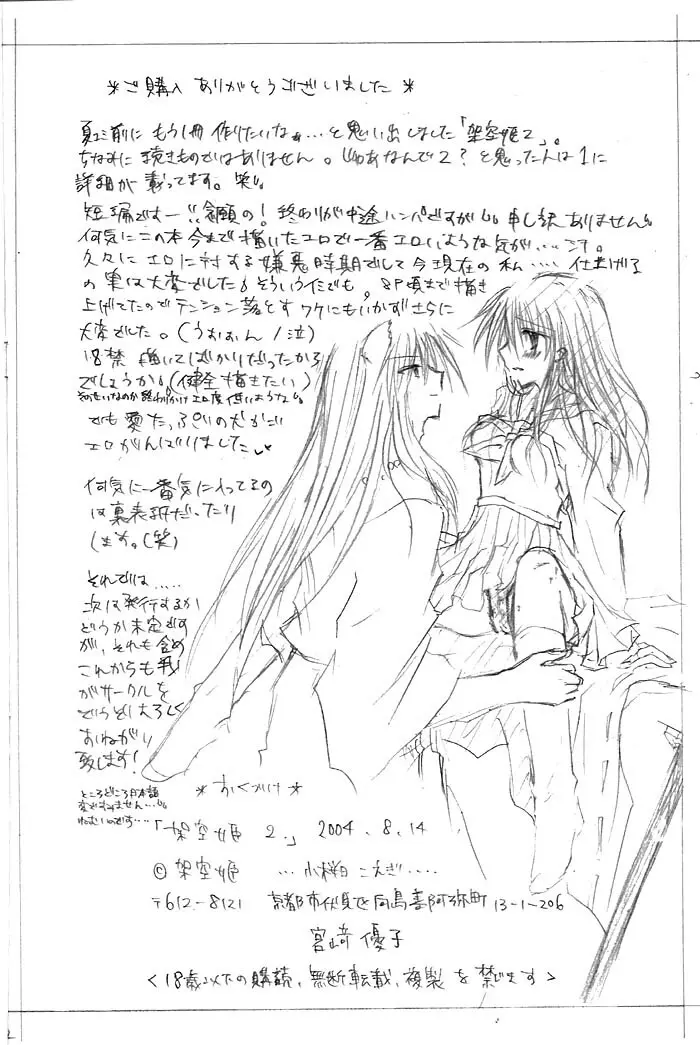 *ご購入 ありがとうございました*
夏コミ前に もう1冊 作りたいなぁ…と思い出しました「架空姫2」。
ちなみに 続きものではありません。じゃあなんで2? と思った人は1に
詳細が 載ってます。笑
短編ですー!!念願の! 終わりが中途ハンパですが 申し訳ありません
何気にこの本今まで描いたエロで一番エロいような気が……です。
久々にエロに対する嫌悪時期でして今現在の私…… 仕上げる
の実は大変でした そういうイミでも。8P頃まで描き
上げてたのでテンション落とすワケにもいかずさらに
大変でした。(うおぉん/泣)
18禁 描いてばかりだったから
でしょうか。(健全描きたい)
でも愛たっぷり
エロがんばりました
何気に一番気に入ってるの
は裏表紙だったり
します。(笑)
それでは.....
次は発行するか
どうか未定です
が、それも含め
これからも我
がサークルを
どうぞよろしく
おねがい
致します!
ところどころ日本語
変ですみません…
ねむいのです…
*おくがき*
「架空姫 2.」 2004.8.14
©架空姫 …小桜 こえぎ….
〒612-8121 京都市伏見区向島善阿弥町13-1-206
宮﨑 優子
<18歳以下の購読、無断転載、複製を禁じます>